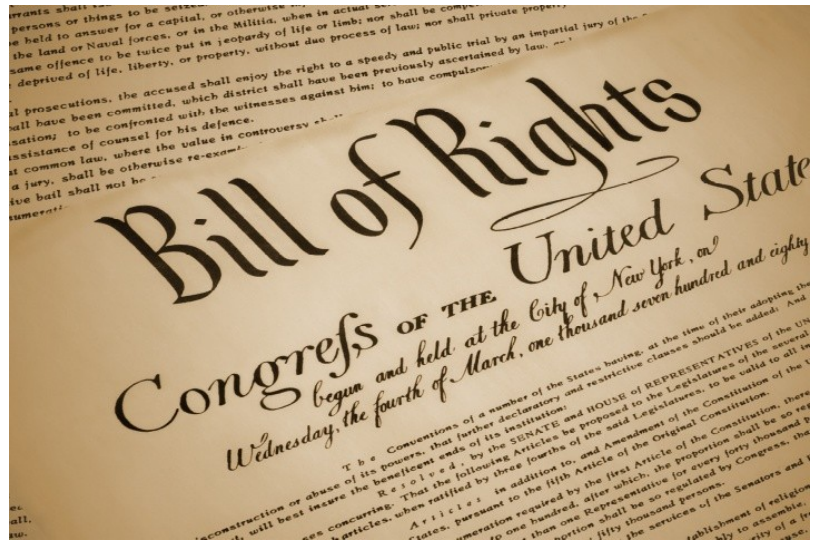 rrants shall
persons or things to be seize
be held to answer for a capital, or otherwise
the land or Naval forces, or in the Militia, when in actual
same offence to be twice put in jeopardy of life or limb; nor shall be compe
deprived of life, liberty, or property, without due process of law; nor shall private property
al prosecutions, the accused shall enjoy the right to a speedy and public trial by an impartial jury of the
all have been committed, which district shall have been previously ascertained by law,
sation; to be confronted with the witnesses against him; to have compulsor
ssistance of counsel for his defence.
t common law, where the value in controversy shall
a jury, shall be otherwise re-exami
ive bail shall not be
numeratio
Bill of Rights
Congreſs OF THE United State
begun and held at the City of New York, on
Wednesday, the fourth of March, one thousand seven hundred and eighty
The Conventions of a number of the States having, at the time of their adopting the
nconstruction or abuse of its powers, that further declaratory and restrictive clauses should be added: And
will best insure the beneficent ends of its institution;
Resolved, by the SENATE and HOUSE of REPRESENTATIVES of the UN
ses concurring. That the following Articles be proposed to the Legislatures of the several
articles, when ratified by three fourths of the said Legislatures, to be valid to all in
Articles in addition to, and Amendment of the Constitution of the U
States, pursuant to the fifth Article of the Original Constitution.
numeration required by the first Article of the Constitution, there
to one hundred, after which, the proportion shall be so reg
than one Representative for every forty thousand p
portion shall be so regulated by Congress, tha
fifty thousand persons.
the services of the Senators and
ablishment of religion
bly to assemble,
rity of a fr
all.
aw.